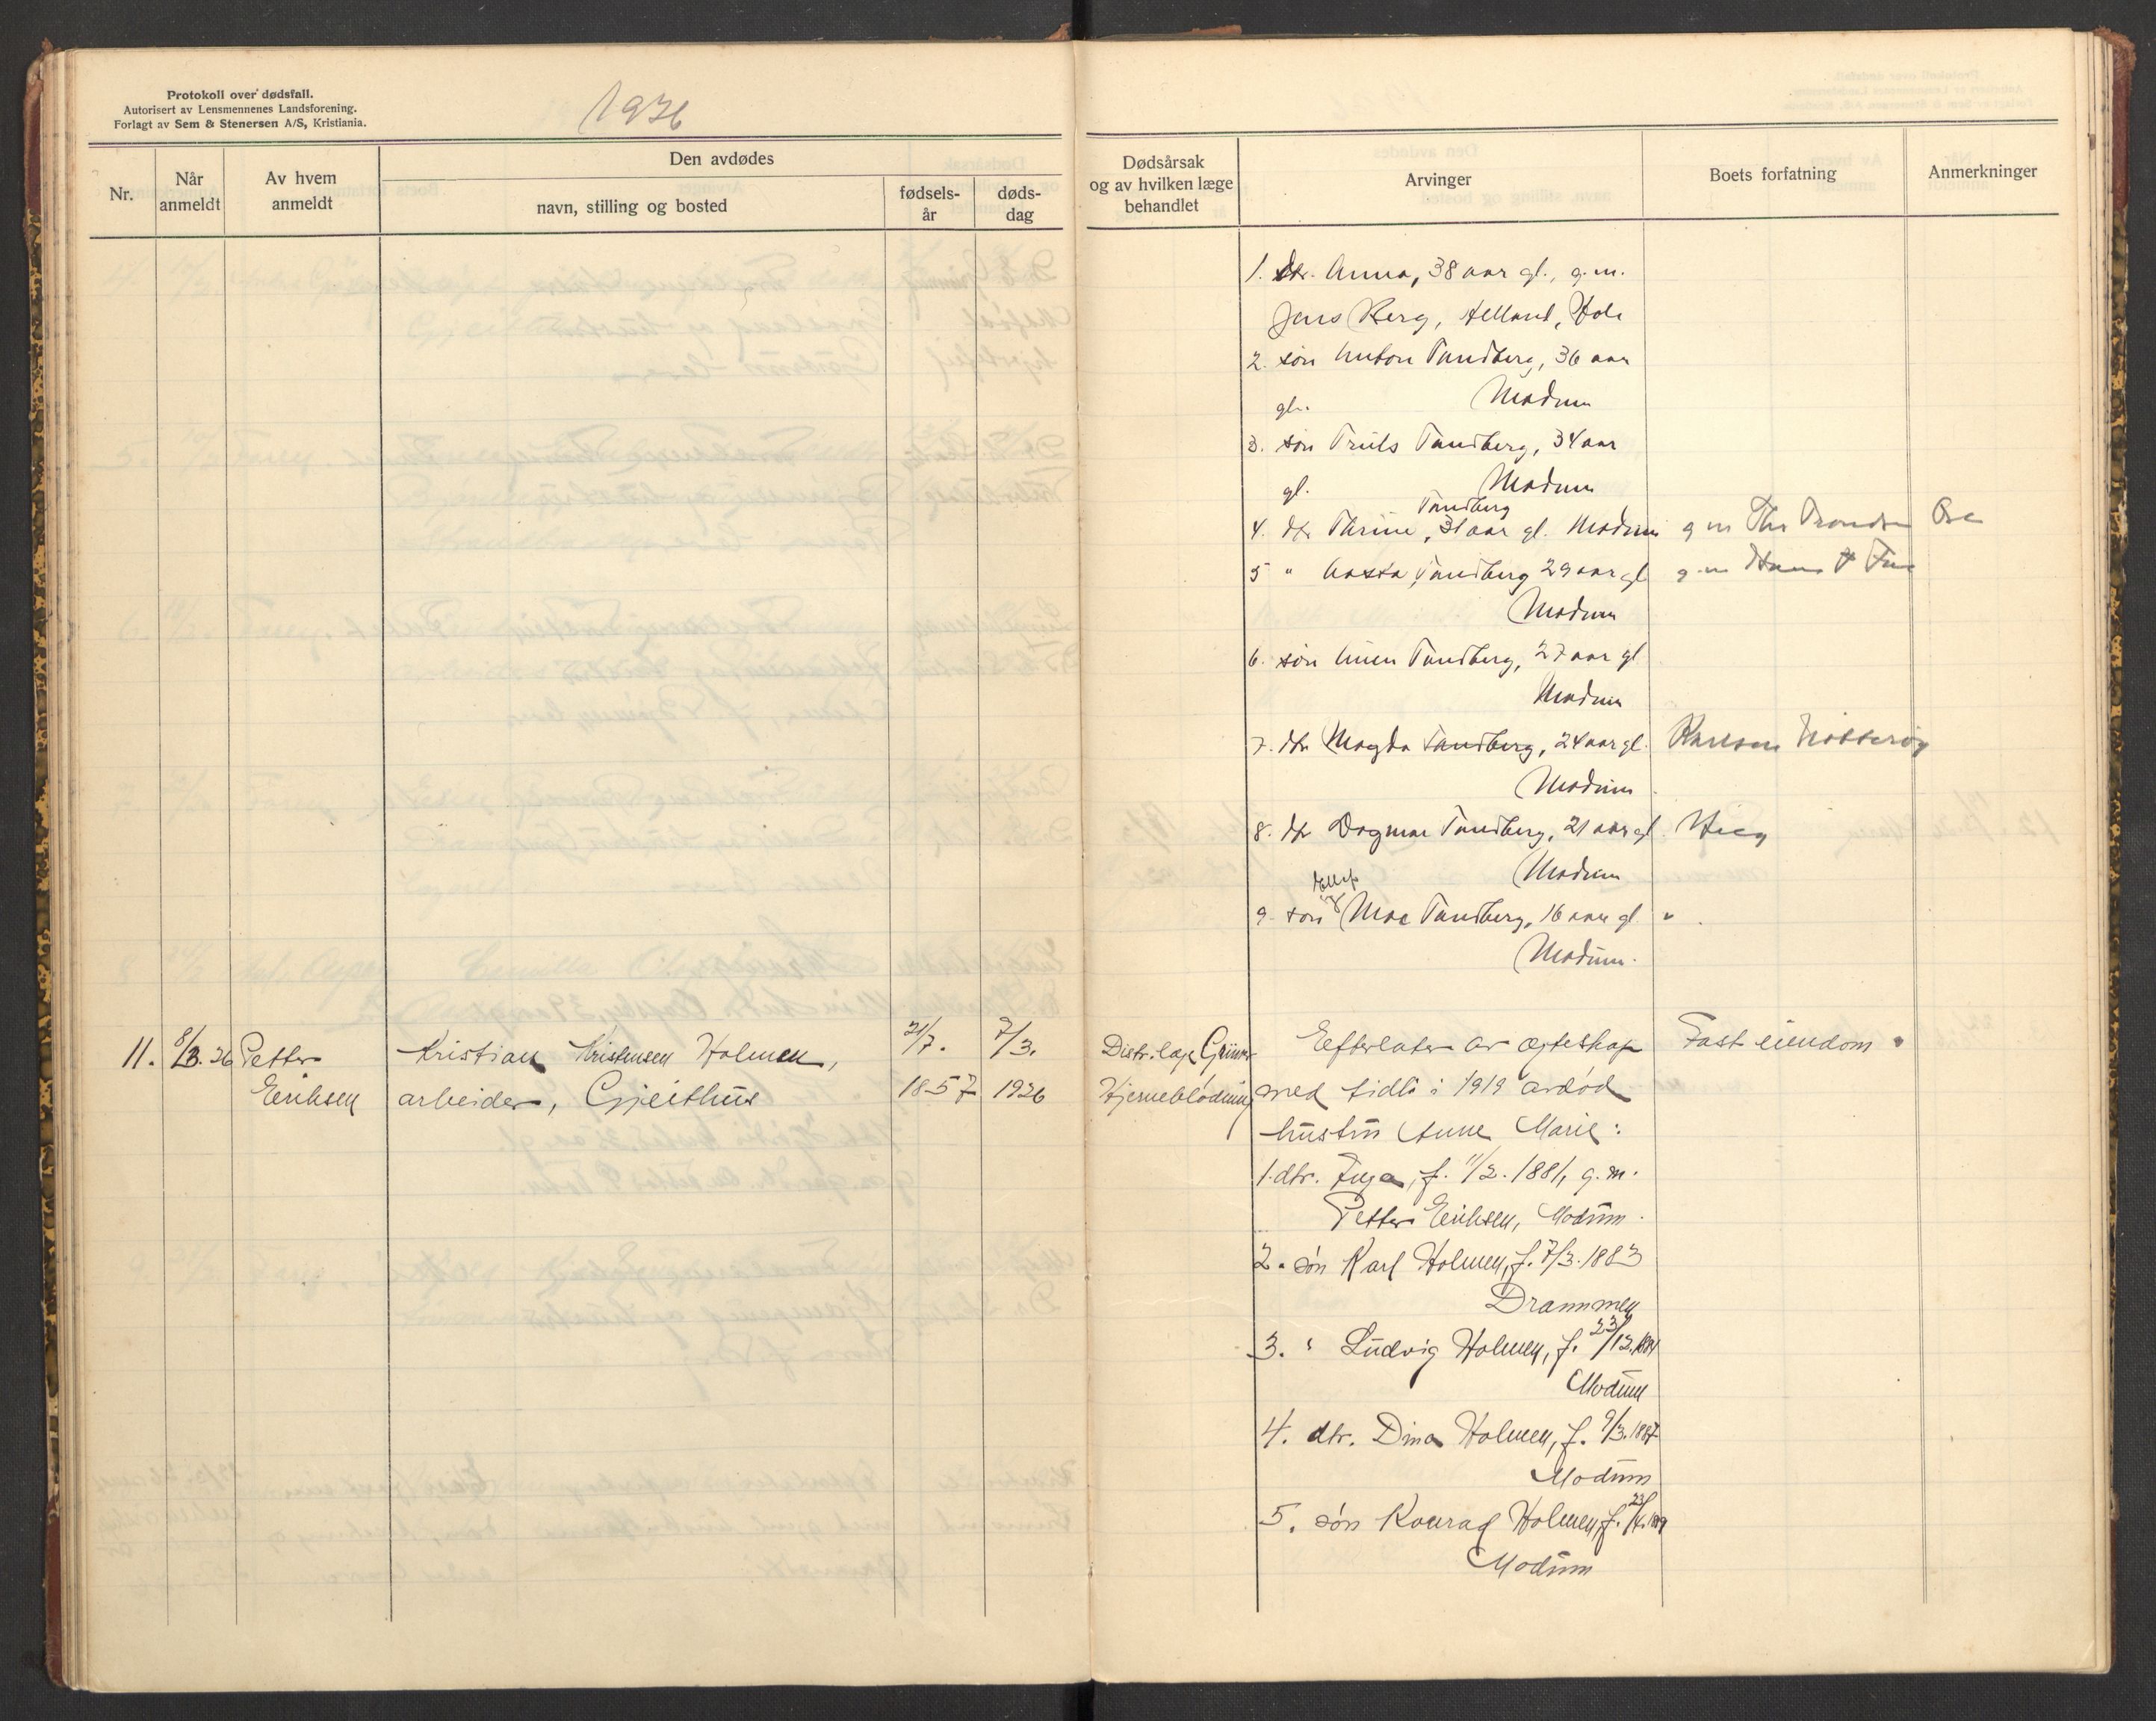 Protokoll over dødsfall.
Autorisert av Lensmennenes Landsforening.
Forlagt av Sem & Stenersen A/S, Kristiania.
1926
Nr.
Når anmeldt
Av hvem anmeldt
Den avdødes
navn, stilling og bosted
fødsels-år
døds-dag
Dødsårsak og av hvilken læge behandlet
Arvinger
Boets forfatning
Anmerkninger
1. dtr. Anna, 38 aar gl., g.m.
Jens Berg, Helland, Hole
2. søn Anton Tandberg, 36 aar
gl. Modum
3. søn Truls Tandberg, 34 aar
gl. Modum
Tandberg
4. dtr Thrine, 31 aar gl. Modum g m Thr Trondsen
5 " Aasta Tandberg 29 aar gl g m Hans
Modum
6. søn Tandberg, 27 aar gl
Modum
7. dtr Magda Tandberg, 24 aar gl. Karlsen Nøtterøy
Modum
8. dtr Dagmar Tandberg, 21 aar gl.
Modum
9. søn Tandberg, 16 aar gl. "
Modum.
11. 8/3. 26 Petter
Eriksen
Kristian Kristensen Holmen,
arbeider, Gjeithus
21/7.
1857
7/3.
1926
Distr.læge Grüner
Hjerneblødning
Efterlater av egteskap
med tidl. i 1919 avdød
hustru Anne Marie:
1. dtr. Inga, f. 11/2. 1881, g.m.
Petter Eriksen, Modum.
2. søn Karl Holmen, f. 7/3. 1883
Drammen
3. " Ludvig Holmen, f. 23/12. 1884
Modum
4. dtr. Dina Holmen, f. 9/3. 1887
Modum
5. søn Konrad Holmen, f. 23/4. 1889
Modum
Fast eiendom.